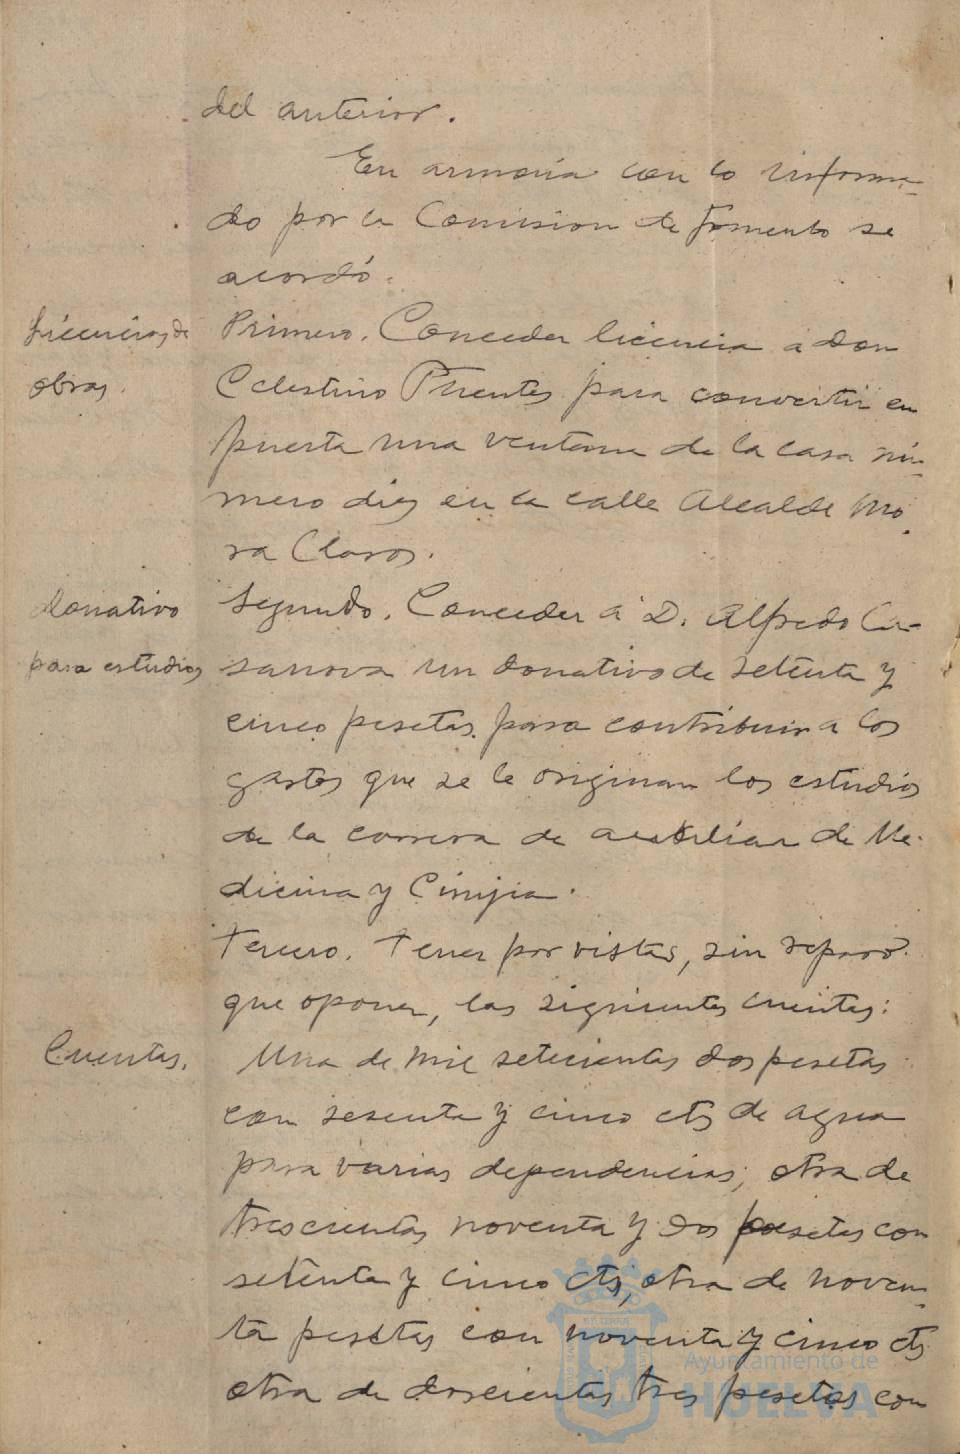 del anterior.
En armonía con lo informa-
do por la Comision de fomento se
acordó.
Licencias de
obras.
Primero. Conceder licencia a don
Celestino Puentes para convertir en
puerta una ventana de la casa nú-
mero diez en la calle Alcalde Mo-
ra Claros.
Donativo
para estudios
Segundo. Conceder a D. Alfredo Ca-
sanova un donativo de setenta y
cinco pesetas para contribuir a los
gastos que se le originan los estudios
de la carrera de auxiliar de Me-
dicina y Cirujia.
Tercero. Tener por vistas, sin reparo
que oponer, las siguientes cuentas:
Cuentas.
Una de mil setecientas dos pesetas
con sesenta y cinco cts de agua
para varias dependencias; otra de
trescientas noventa y dos pesetas con
setenta y cinco cts, otra de noven-
ta pesetas con noventa y cinco cts
otra de doscientas tres pesetas con
Ayuntamiento de
HUELVA